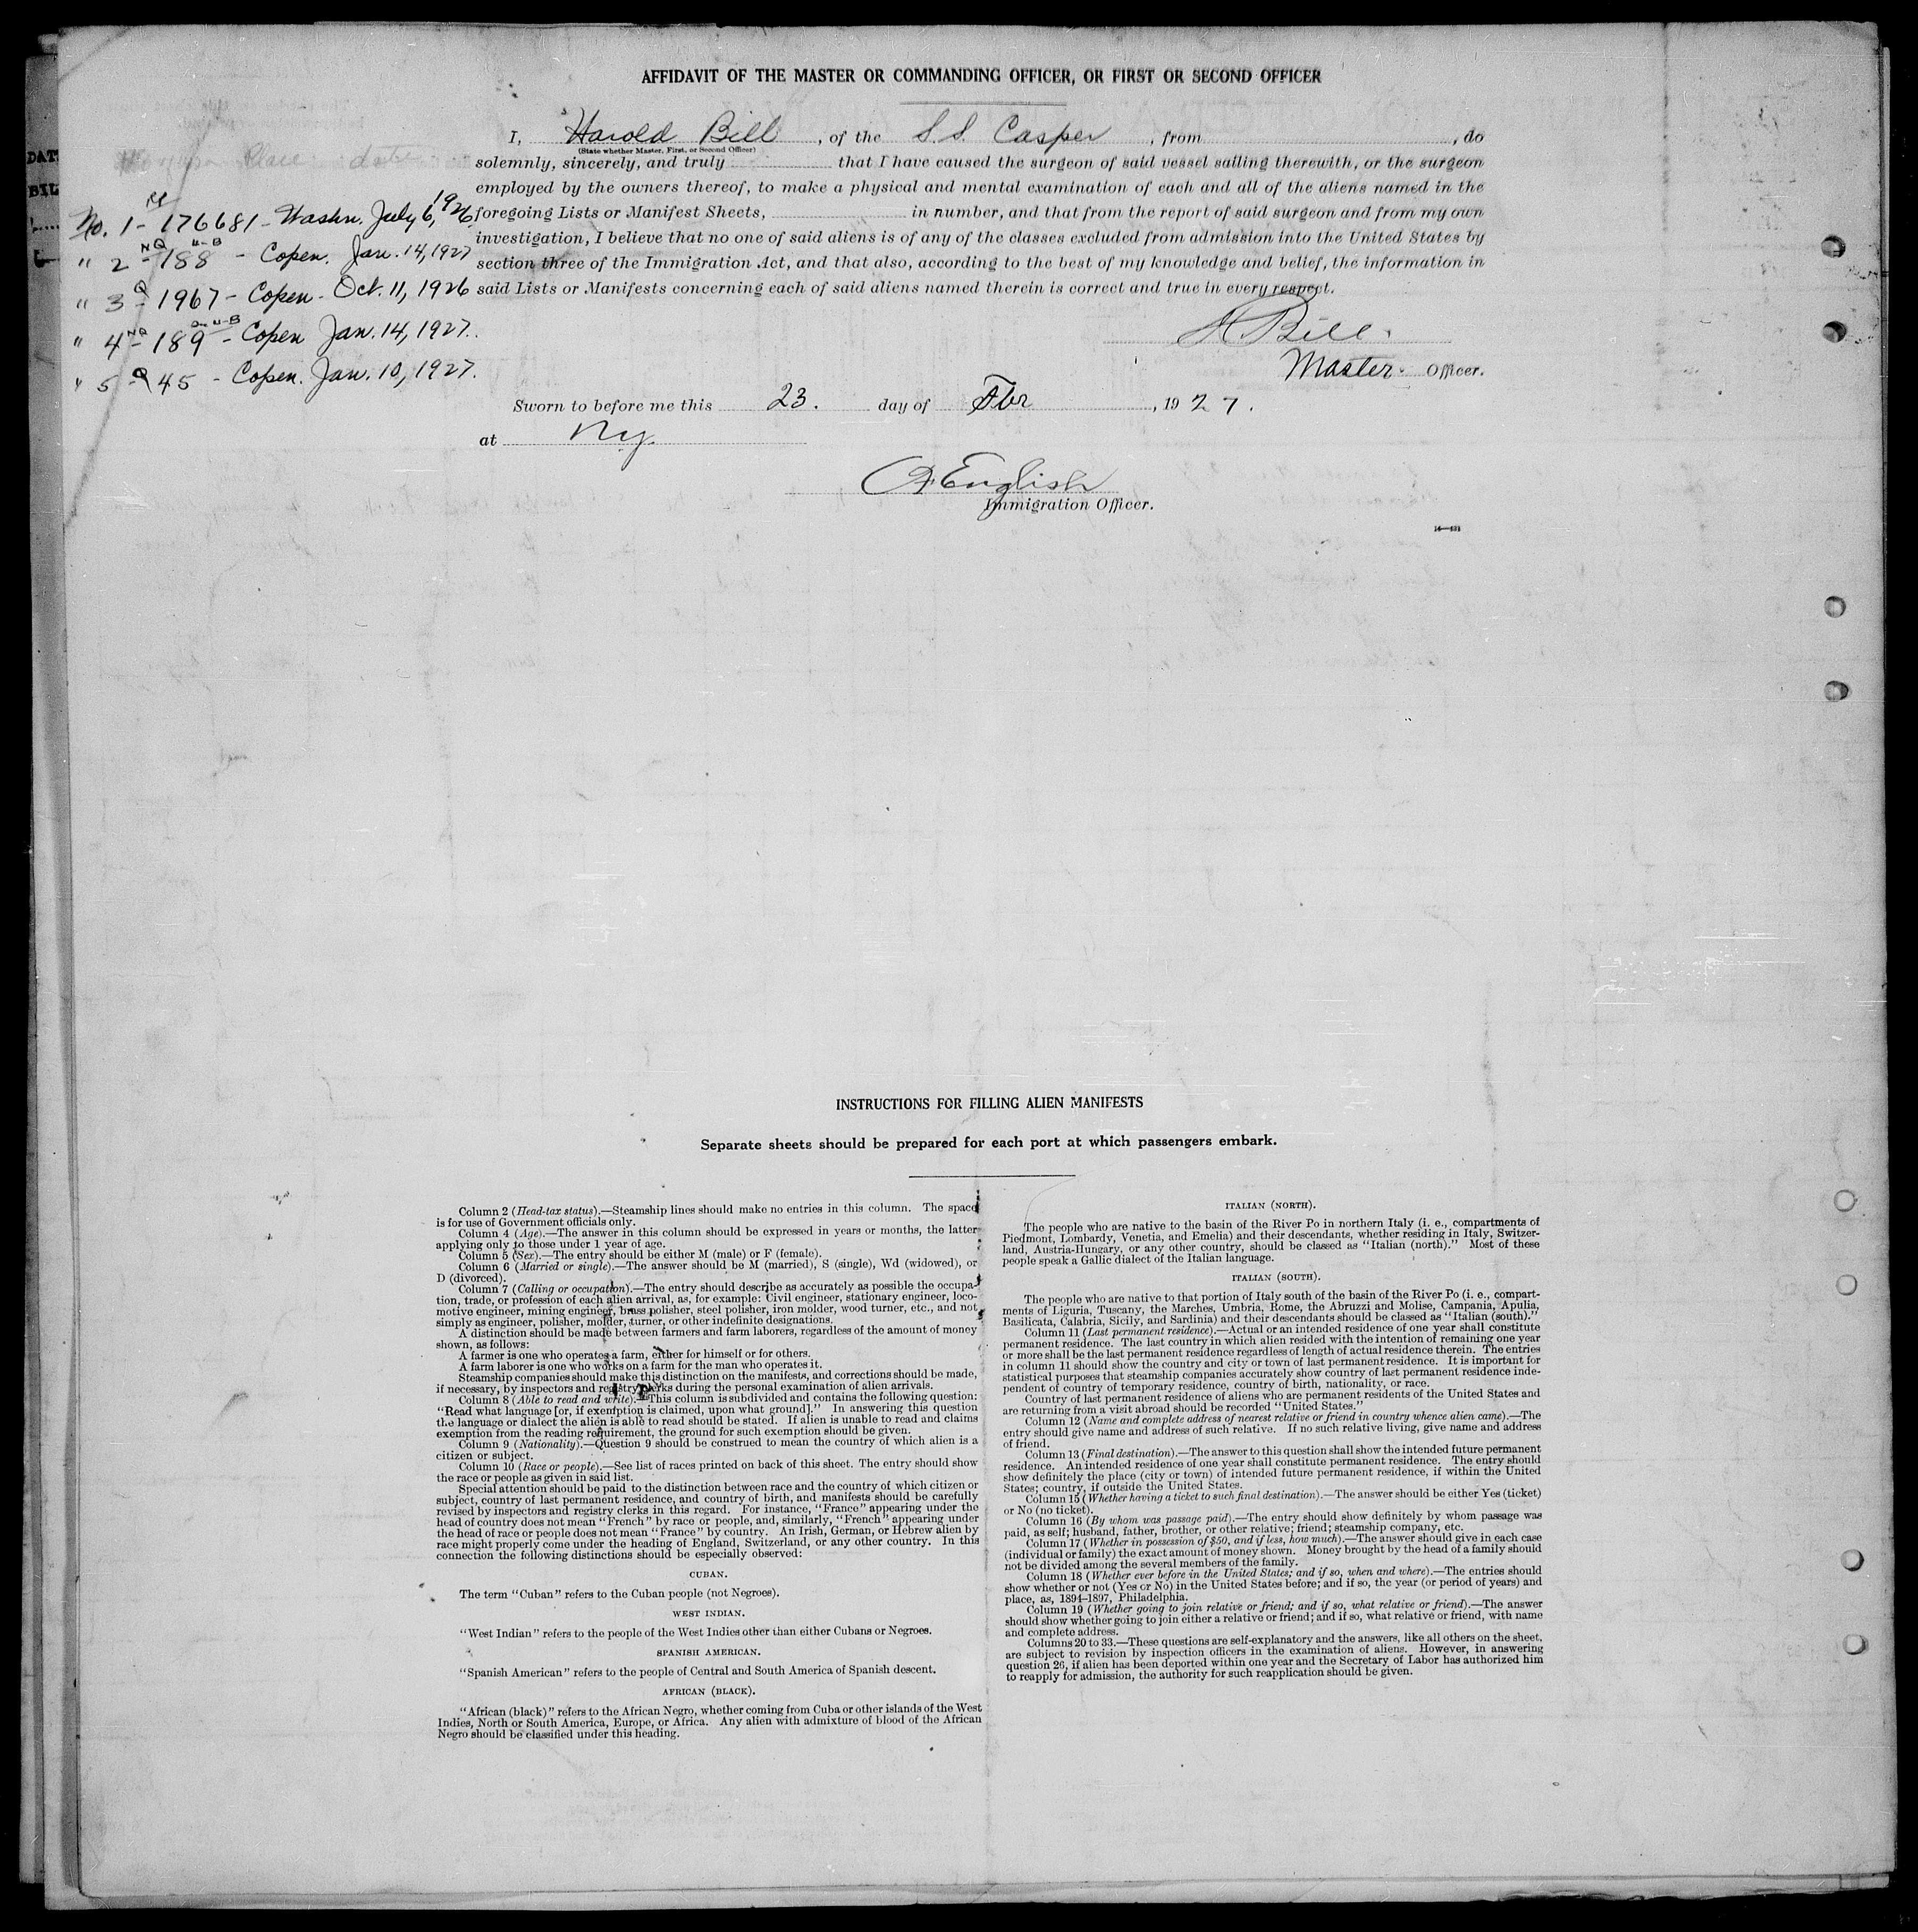 AFFIDAVIT OF THE MASTER OR COMMANDING OFFICER, OR FIRST OR SECOND OFFICER
I, Harold Bill, of the S.S. Casper, from , do
(State whether Master, First, or Second Officer)
solemnly, sincerely, and truly that I have caused the surgeon of said vessel sailing therewith, or the surgeon
employed by the owners thereof, to make a physical and mental examination of each and all of the aliens named in the
foregoing Lists or Manifest Sheets, in number, and that from the report of said surgeon and from my own
investigation, I believe that no one of said aliens is of any of the classes excluded from admission into the United States by
section three of the Immigration Act, and that also, according to the best of my knowledge and belief, the information in
said Lists or Manifests concerning each of said aliens named therein is correct and true in every respect.
H Bill.
Master. Officer.
Sworn to before me this 23. day of Fbr, 1927.
at Ny.
English
Immigration Officer.
Place date
DAT
BIL
No. 1 - 176681 - Washn. July 6, 1926.
" 2 - NQ 188 - Copen. Jan. 14, 1927
" 3 - Q 1967 - Copen - Oct. 11, 1926
" 4 - NQ 189 - Copen Jan. 14, 1927.
" 5 - Q 45 - Copen. Jan. 10, 1927.
INSTRUCTIONS FOR FILLING ALIEN MANIFESTS
Separate sheets should be prepared for each port at which passengers embark.
Column 2 (Head-tax status).—Steamship lines should make no entries in this column. The space
is for use of Government officials only.
Column 4 (Age).—The answer in this column should be expressed in years or months, the latter
applying only to those under 1 year of age.
Column 5 (Sex).—The entry should be either M (male) or F (female).
Column 6 (Married or single).—The answer should be M (married), S (single), Wd (widowed), or
D (divorced).
Column 7 (Calling or occupation).—The entry should describe as accurately as possible the occupa-
tion, trade, or profession of each alien arrival, as, for example: Civil engineer, stationary engineer, loco-
motive engineer, mining engineer, brass polisher, steel polisher, iron molder, wood turner, etc., and not
simply as engineer, polisher, molder, turner, or other indefinite designations.
A distinction should be made between farmers and farm laborers, regardless of the amount of money
shown, as follows:
A farmer is one who operates a farm, either for himself or for others.
A farm laborer is one who works on a farm for the man who operates it.
Steamship companies should make this distinction on the manifests, and corrections should be made,
if necessary, by inspectors and registry clerks during the personal examination of alien arrivals.
Column 8 (Able to read and write).—This column is subdivided and contains the following question:
"Read what language [or, if exemption is claimed, upon what ground]." In answering this question
the language or dialect the alien is able to read should be stated. If alien is unable to read and claims
exemption from the reading requirement, the ground for such exemption should be given.
Column 9 (Nationality).—Question 9 should be construed to mean the country of which alien is a
citizen or subject.
Column 10 (Race or people).—See list of races printed on back of this sheet. The entry should show
the race or people as given in said list.
Special attention should be paid to the distinction between race and the country of which citizen or
subject, country of last permanent residence, and country of birth, and manifests should be carefully
revised by inspectors and registry clerks in this regard. For instance, "France" appearing under the
head of country does not mean "French" by race or people, and, similarly, "French" appearing under
the head of race or people does not mean "France" by country. An Irish, German, or Hebrew alien by
race might properly come under the heading of England, Switzerland, or any other country. In this
connection the following distinctions should be especially observed:
CUBAN.
The term "Cuban" refers to the Cuban people (not Negroes).
WEST INDIAN.
"West Indian" refers to the people of the West Indies other than either Cubans or Negroes.
SPANISH AMERICAN.
"Spanish American" refers to the people of Central and South America of Spanish descent.
AFRICAN (BLACK).
"African (black)" refers to the African Negro, whether coming from Cuba or other islands of the West
Indies, North or South America, Europe, or Africa. Any alien with admixture of blood of the African
Negro should be classified under this heading.
ITALIAN (NORTH).
The people who are native to the basin of the River Po in northern Italy (i. e., compartments of
Piedmont, Lombardy, Venetia, and Emelia) and their descendants, whether residing in Italy, Switzer-
land, Austria-Hungary, or any other country, should be classed as "Italian (north)." Most of these
people speak a Gallic dialect of the Italian language.
ITALIAN (SOUTH).
The people who are native to that portion of Italy south of the basin of the River Po (i. e., compart-
ments of Liguria, Tuscany, the Marches, Umbria, Rome, the Abruzzi and Molise, Campania, Apulia,
Basilicata, Calabria, Sicily, and Sardinia) and their descendants should be classed as "Italian (south)."
Column 11 (Last permanent residence).—Actual or an intended residence of one year shall constitute
permanent residence. The last country in which alien resided with the intention of remaining one year
or more shall be the last permanent residence regardless of length of actual residence therein. The entries
in column 11 should show the country and city or town of last permanent residence. It is important for
statistical purposes that steamship companies accurately show country of last permanent residence inde-
pendent of country of temporary residence, country of birth, nationality, or race.
Country of last permanent residence of aliens who are permanent residents of the United States and
are returning from a visit abroad should be recorded "United States."
Column 12 (Name and complete address of nearest relative or friend in country whence alien came).—The
entry should give name and address of such relative. If no such relative living, give name and address
of friend.
Column 13 (Final destination).—The answer to this question shall show the intended future permanent
residence. An intended residence of one year shall constitute permanent residence. The entry should
show definitely the place (city or town) of intended future permanent residence, if within the United
States; country, if outside the United States.
Column 15 (Whether having a ticket to such final destination).—The answer should be either Yes (ticket)
or No (no ticket).
Column 16 (By whom was passage paid).—The entry should show definitely by whom passage was
paid, as self; husband, father, brother, or other relative; friend; steamship company, etc.
Column 17 (Whether in possession of $50, and if less, how much).—The answer should give in each case
(individual or family) the exact amount of money shown. Money brought by the head of a family should
not be divided among the several members of the family.
Column 18 (Whether ever before in the United States; and if so, when and where).—The entries should
show whether or not (Yes or No) in the United States before; and if so, the year (or period of years) and
place, as, 1894–1897, Philadelphia.
Column 19 (Whether going to join relative or friend; and if so, what relative or friend).—The answer
should show whether going to join either a relative or friend; and if so, what relative or friend, with name
and complete address.
Columns 20 to 33.—These questions are self-explanatory and the answers, like all others on the sheet,
are subject to revision by inspection officers in the examination of aliens. However, in answering
question 26, if alien has been deported within one year and the Secretary of Labor has authorized him
to reapply for admission, the authority for such reapplication should be given.